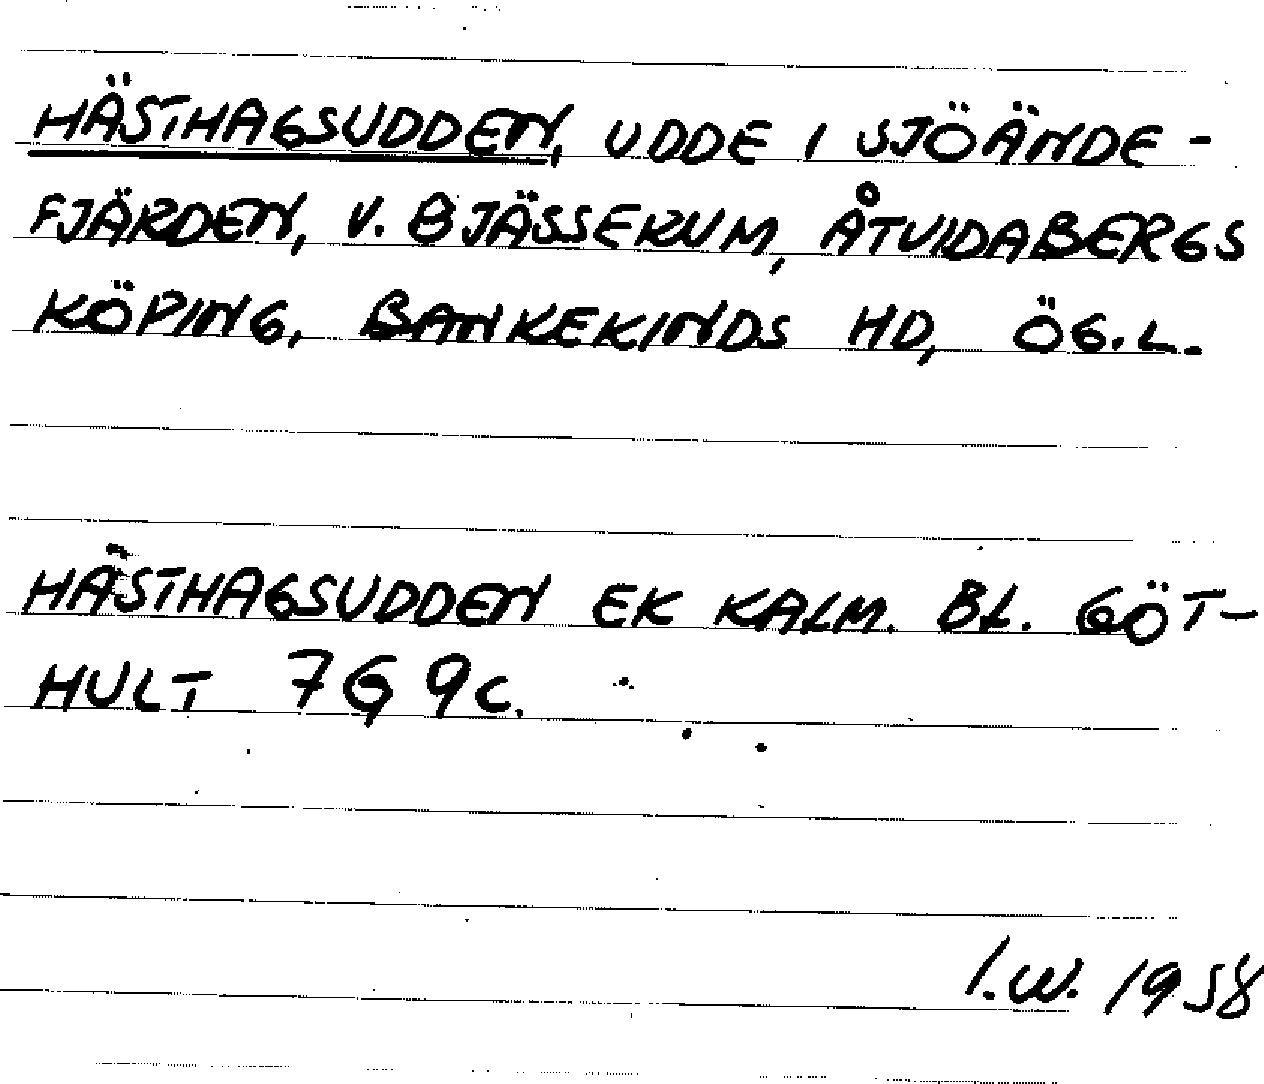 HÄSTHAGSUDDEN, UDDE I SJÖÄNDE-
FJÄRDEN, V. BJÄSSEKUM, ÅTVIDABERGS
KÖPING, BANKEKINDS HD, ÖG.L.
HÄSTHAGSUDDEN EK KALM. BL. GÖT-
HULT 7G 9c.
I.W. 1958